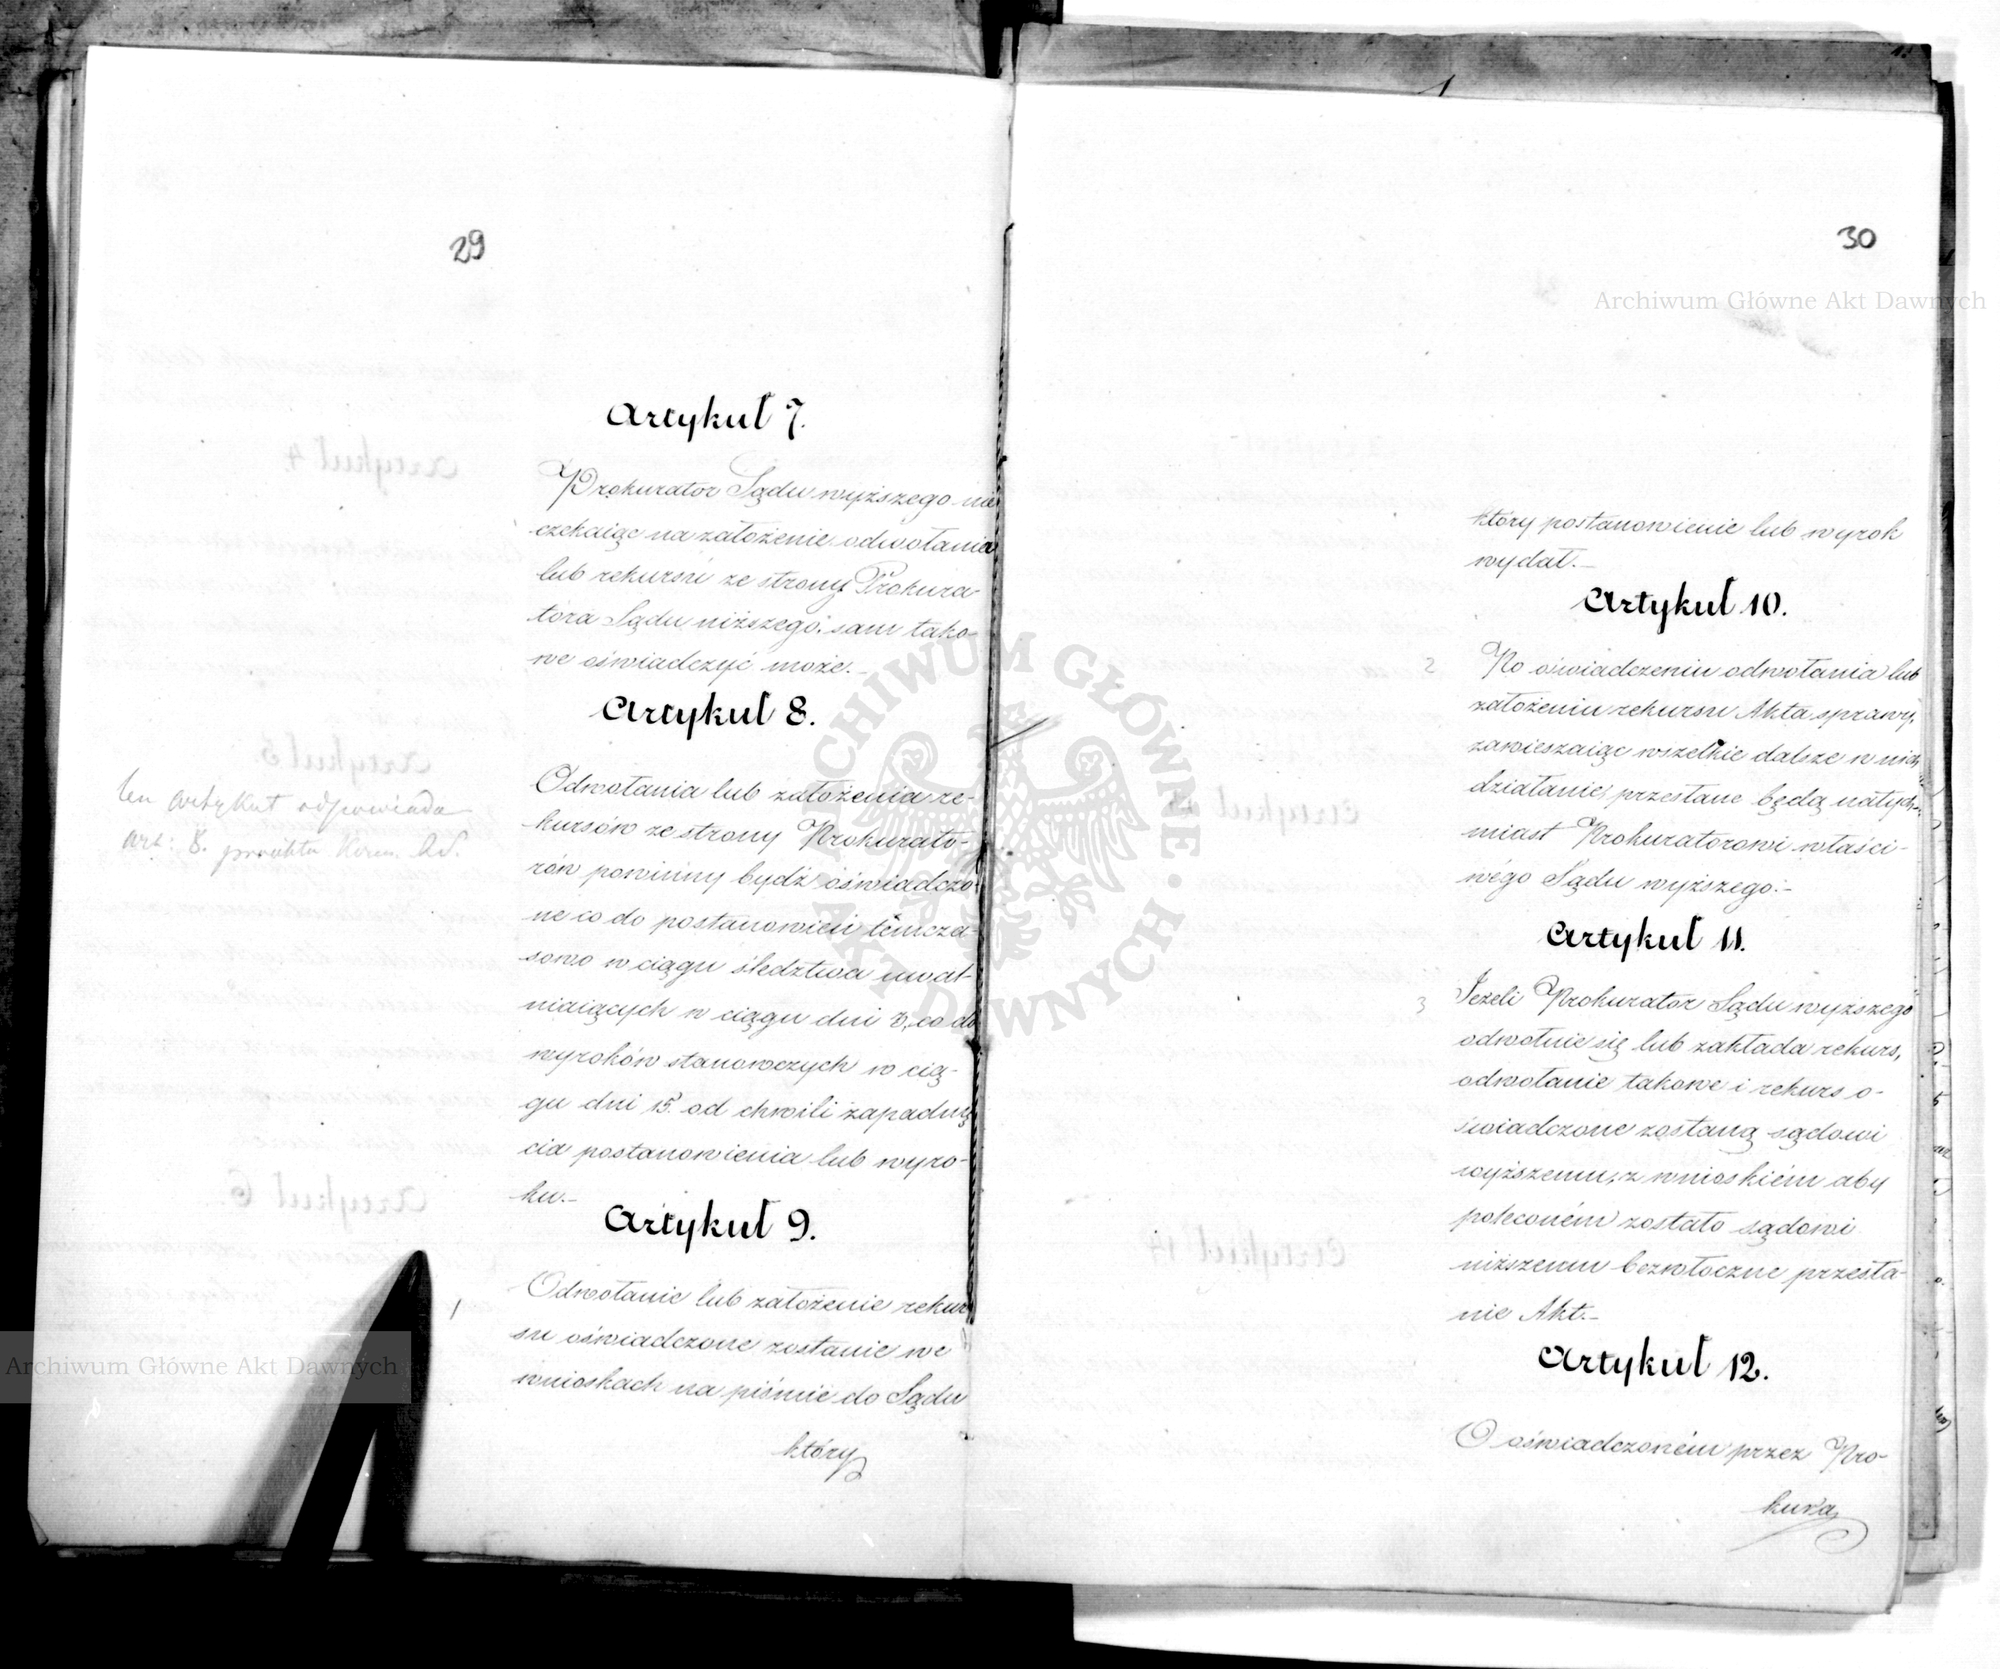 29
Artykuł 7.
Prokurator Sądu wyższego nie
czekaiąc na założenie odwołania
lub rekursu ze strony Prokura-
tora Sądu niższego, sam tako-
we oświadczyć może.-
Artykuł 8.
Ten artykuł odpowiada
art: 8. proiektu Kom.
Odwołania lub założenia re-
kursów ze strony Prokurato-
rów powinny bydź oświadczo-
ne co do postanowień tymcza-
sowo w ciągu śledztwa uwal-
niaiących w ciągu dni 8, co do
wyroków stanowczych w cią-
gu dni 15. od chwili zapadnię
cia postanowienia lub wyro-
ku.-
Artykuł 9.
1
Odwołanie lub założenie rekur
su oświadczone zostanie we
wnioskach na piśmie do Sądu
który
30
który postanowienie lub wyrok
wydał.-
Artykuł 10.
2 Po oświadczeniu odwołania lub
założeniu rekursu Akta sprawy,
zawieszaiąc wszelkie dalsze w niey
działanie, przesłane będą natych-
miast Prokuratorowi właści-
wégo Sądu wyższego.-
Artykuł 11.
3 Jeżeli Prokurator Sądu wyższego
odwołuie się lub zakłada rekurs,
odwołanie takowe i rekurs o-
świadczone zostaną sądowi
wyższemu, z wnioskiém aby
poleconém zostało sądowi
niższemu bezwłoczne przesła-
nie Akt.-
Artykuł 12.
O oświadczoném przez Pro-
kura
Archiwum Główne Akt Dawnych
Archiwum Główne Akt Dawnych
ARCHIWUM GŁÓWNE AKT DAWNYCH